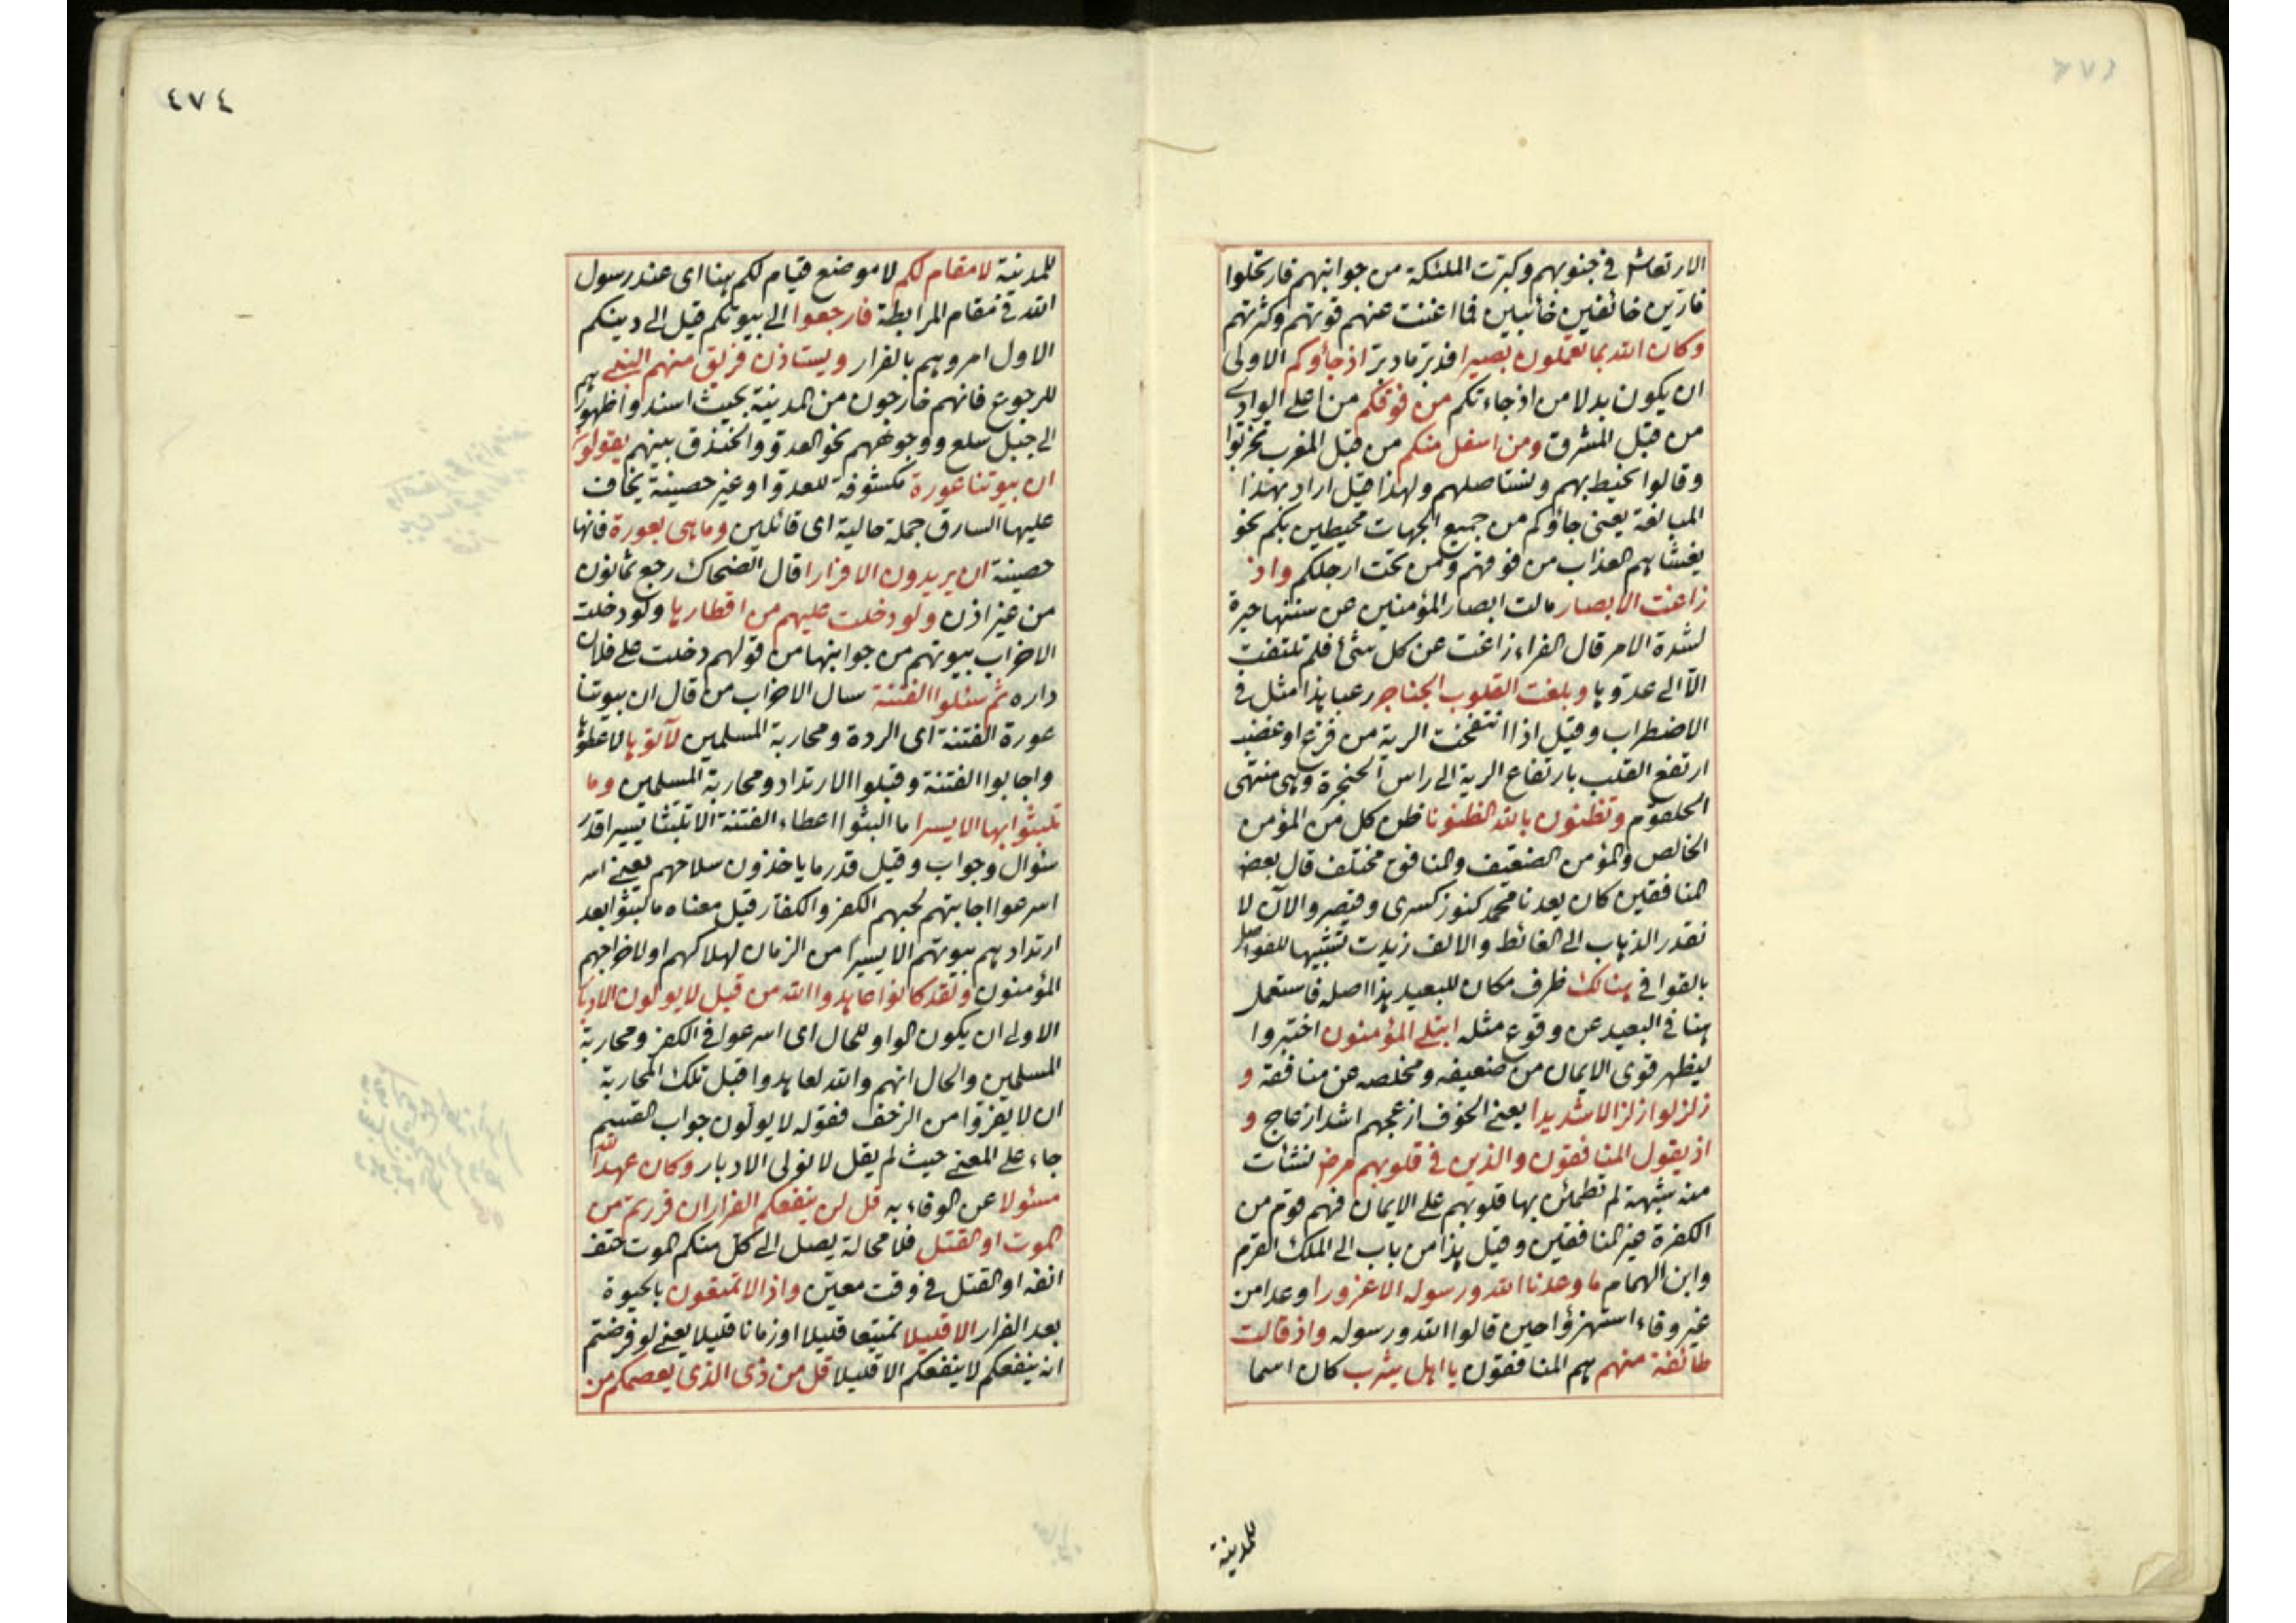 الارتعاش في جنوبهم وكبرت الملئكة من جوانبهم فارتحلوا
فارين خائفين خائبين فما اغنت عنهم قوتهم وكثرتهم
وكان الله بما تعملون بصيرا فدبر ما دبر اذ جاؤكم الاولى
ان يكون بدلا من اذ جاءتكم من فوقكم من اعلى الوادي
من قبل المشرق ومن اسفل منكم من قبل المغرب تحزبوا
وقالوا نحيط بهم ونستاصلهم ولهذا قيل اراد بهذا
المبالغة يعنى جاؤكم من جميع الجهات محيطين بكم نحو
يغشاهم العذاب من فوقهم ومن تحت ارجلكم واذ
زاغت الابصار مالت ابصار المؤمنين عن سننها حيرة
لشدة الامر قال الفراء زاغت عن كل شئ فلم تلتفت
الا الى عدوها وبلغت القلوب الحناجر رعبا هذا مثل في
الاضطراب وقيل اذا انتفخت الرية من فزع او غضب
ارتفع القلب بارتفاع الرية الى راس الحنجرة وهى منتهى
الحلقوم وتظنون بالله الظنونا ظن كل من المؤمن
الخالص والمؤمن الضعيف والمنافق مختلف قال بعض
المنافقين كان يعدنا محمد كنوز كسرى وقيصر والآن لا
نقدر الذهاب الى الغائط والالف زيدت تشبيها للفواصل
بالقوافي هنالك ظرف مكان للبعيد هذا اصله فاستعمل
هنا في البعيد عن وقوع مثله ابتلى المؤمنون اختبروا
ليظهر قوى الايمان من ضعيفه ومخلصه عن منافقه و
زلزلوا زلزالا شديدا يعنى الخوف ازعجهم اشد ازعاج و
اذ يقول المنافقون والذين في قلوبهم مرض نشأت
منه شبهة لم تطمئن بها قلوبهم على الايمان فهم قوم من
الكفرة غير المنافقين وقيل هذا من باب الى الملك القرم
وابن الهمام ما وعدنا الله ورسوله الا غرورا وعدا من
غير وفاء استهزؤا حين قالوا الله ورسوله واذ قالت
طائفة منهم هم المنافقون يا اهل يثرب كان اسما
للمدينة
٤٧٤
للمدينة لا مقام لكم لا موضع قيام لكم هنا اى عند رسول
الله في مقام المرابطة فارجعوا الى بيوتكم قيل الى دينكم
الاول امروهم بالفرار ويستاذن فريق منهم النبى هم
للرجوع فانهم خارجون من المدينة بحيث اسندوا ظهورهم
الى جبل سلع ووجوههم نحو العدو والخندق بينهم يقولون
ان بيوتنا عورة مكشوفة للعدو او غير حصينة يخاف
عليها السارق جملة حالية اى قائلين وما هى بعورة فانها
حصينة ان يريدون الا فرارا قال الضحاك رجع ثمانون
من غير اذن ولو دخلت عليهم من اقطارها ولو دخلت
الاحزاب بيوتهم من جوانبها من قولهم دخلت على فلان
داره ثم سئلوا الفتنة سال الاحزاب من قال ان بيوتنا
عورة الفتنة اى الردة ومحاربة المسلمين لآتوها لاعطوها
واجابوا الفتنة وقبلوا الارتداد ومحاربة المسلمين وما
تلبثوا بها الا يسيرا ما البثوا اعطاء الفتنة الا تلبثا يسيرا قدر
سئوال وجواب وقيل قدر ما ياخذون سلاحهم يعنى انه
اسرعوا اجابتهم لحبهم الكفر والكفار قيل معناه ما لبثوا بعد
ارتدادهم بيوتهم الا يسيرا من الزمان لهلاكهم او لاخراجهم
المؤمنون ولقد كانوا عاهدوا الله من قبل لا يولون الادبار
الاولى ان يكون الواو للحال اى اسرعوا في الكفر ومحاربة
المسلمين والحال انهم والله لعاهدوا قبل تلك المحاربة
ان لا يفروا من الزحف فقوله لا يولون جواب القسم
جاء على المعنى حيث لم يقل لا نولى الادبار وكان عهد الله
مسئولا عن الوفاء به قل لن ينفعكم الفرار ان فررتم من
الموت او القتل فلا محالة يصل الى كل منكم الموت حتف
انفه او القتل في وقت معين واذا لا تمتعون بالحيوة
بعد الفرار الا قليلا تمتيعا قليلا او زمانا قليلا يعنى لو فرضتم
انه ينفعكم لا ينفعكم الا قليلا قل من ذى الذى يعصمكم من